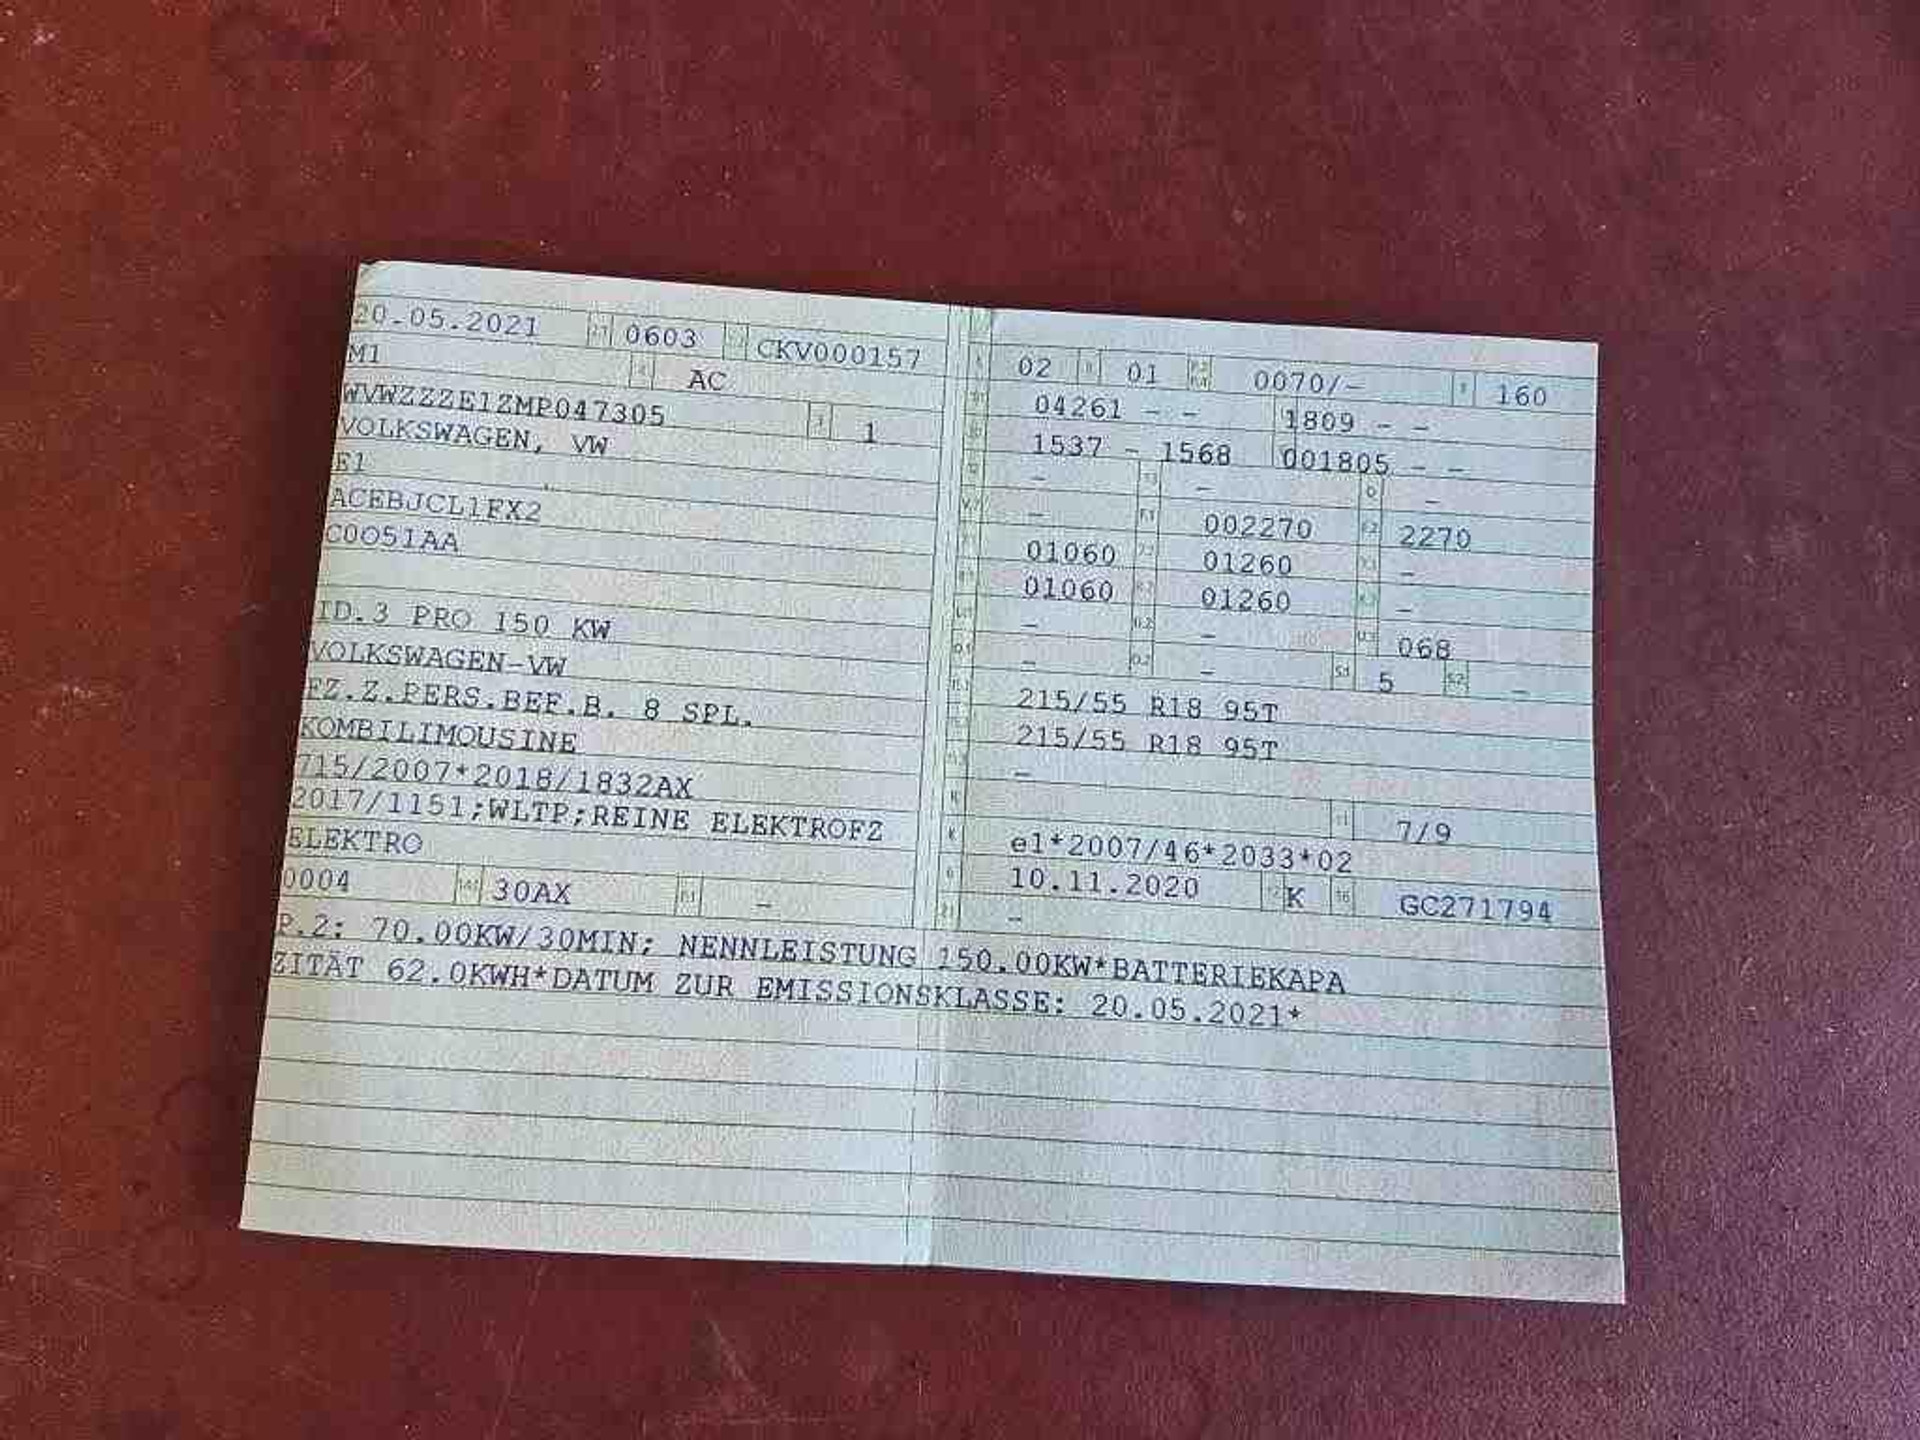 20.05.2021 0603 CKV000157
M1 AC
WVWZZZE1ZMP047305 1
VOLKSWAGEN, VW
E1
ACEBJCL1FX2
C0O51AA
ID.3 PRO 150 KW
VOLKSWAGEN-VW
FZ.Z.PERS.BEF.B. 8 SPL.
KOMBILIMOUSINE
715/2007*2018/1832AX
2017/1151;WLTP;REINE ELEKTROFZ
ELEKTRO
0004 30AX -
02 01 0070/- 160
04261 - - 1809 - -
1537 - 1568 001805 - -
- - -
- 002270 2270
01060 01260 -
01060 01260 -
- - 068
- - 5 -
215/55 R18 95T
215/55 R18 95T
-
7/9
e1*2007/46*2033*02
10.11.2020 K GC271794
-
P.2: 70.00KW/30MIN; NENNLEISTUNG 150.00KW*BATTERIEKAPA
ZITÄT 62.0KWH*DATUM ZUR EMISSIONSKLASSE: 20.05.2021*